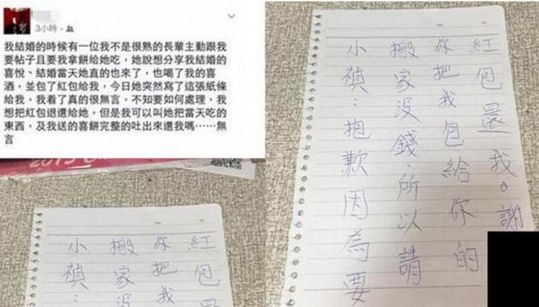 3小時
我結婚的時候有一位我不是很熟的長輩主動跟我
要帖子且要我拿餅給她吃，她說想分享我結婚的
喜悅、結婚當天她直的也來了，也喝了我的喜
酒，並包了紅包給我，今日她突然寫了這張紙條
給我，我看了真的很無言，不知要如何處理，我
想把紅包退還給她，但是我可以叫她把當天吃的
東西，及我送的喜餅完整的吐出來還我嗎……無
言
小禎：
搬家沒
你把我
紅包
小禎：抱歉因為要
搬家沒錢，所以請
你把我包給你的
紅包還我。謝